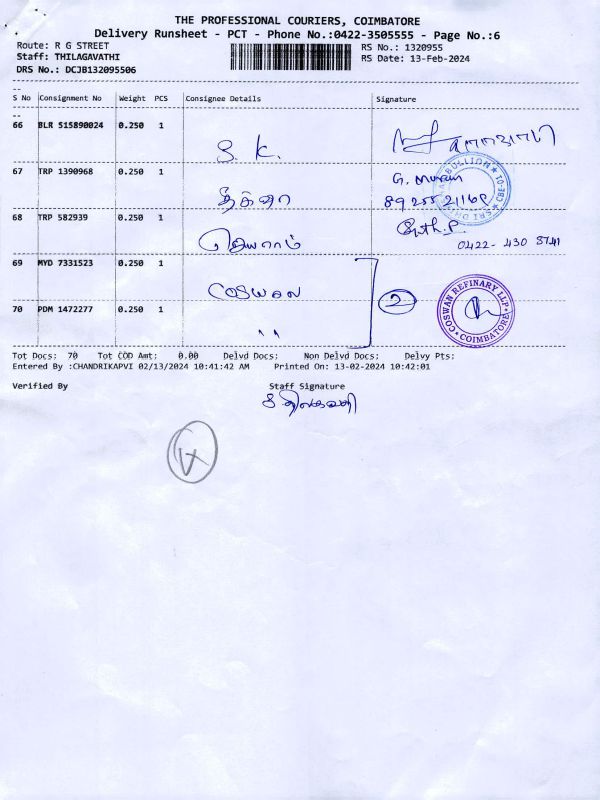 THE PROFESSIONAL COURIERS, COIMBATORE
Delivery Runsheet - PCT - Phone No.:0422-3505555 - Page No.:6
Route: R G STREET
RS No.: 1320955
Staff: THILAGAVATHI
RS Date: 13-Feb-2024
DRS No.: DCJB132095506
S No Consignment No Weight PCS Consignee Details Signature
66 BLR 515890024 0.250 1
S. K.
67 TRP 1390968 0.250 1
G. Murali
68 TRP 582939 0.250 1
ஜெயராம்
0422- 430 8741
69 MYD 7331523 0.250 1
2
COSWAN REFINARY LLP
COIMBATORE
70 PDM 1472277 0.250 1
" "
Tot Docs: 70 Tot COD Amt: 0.00 Delvd Docs: Non Delvd Docs: Delvy Pts:
Entered By :CHANDRIKAPVI 02/13/2024 10:41:42 AM Printed On: 13-02-2024 10:42:01
Verified By Staff Signature